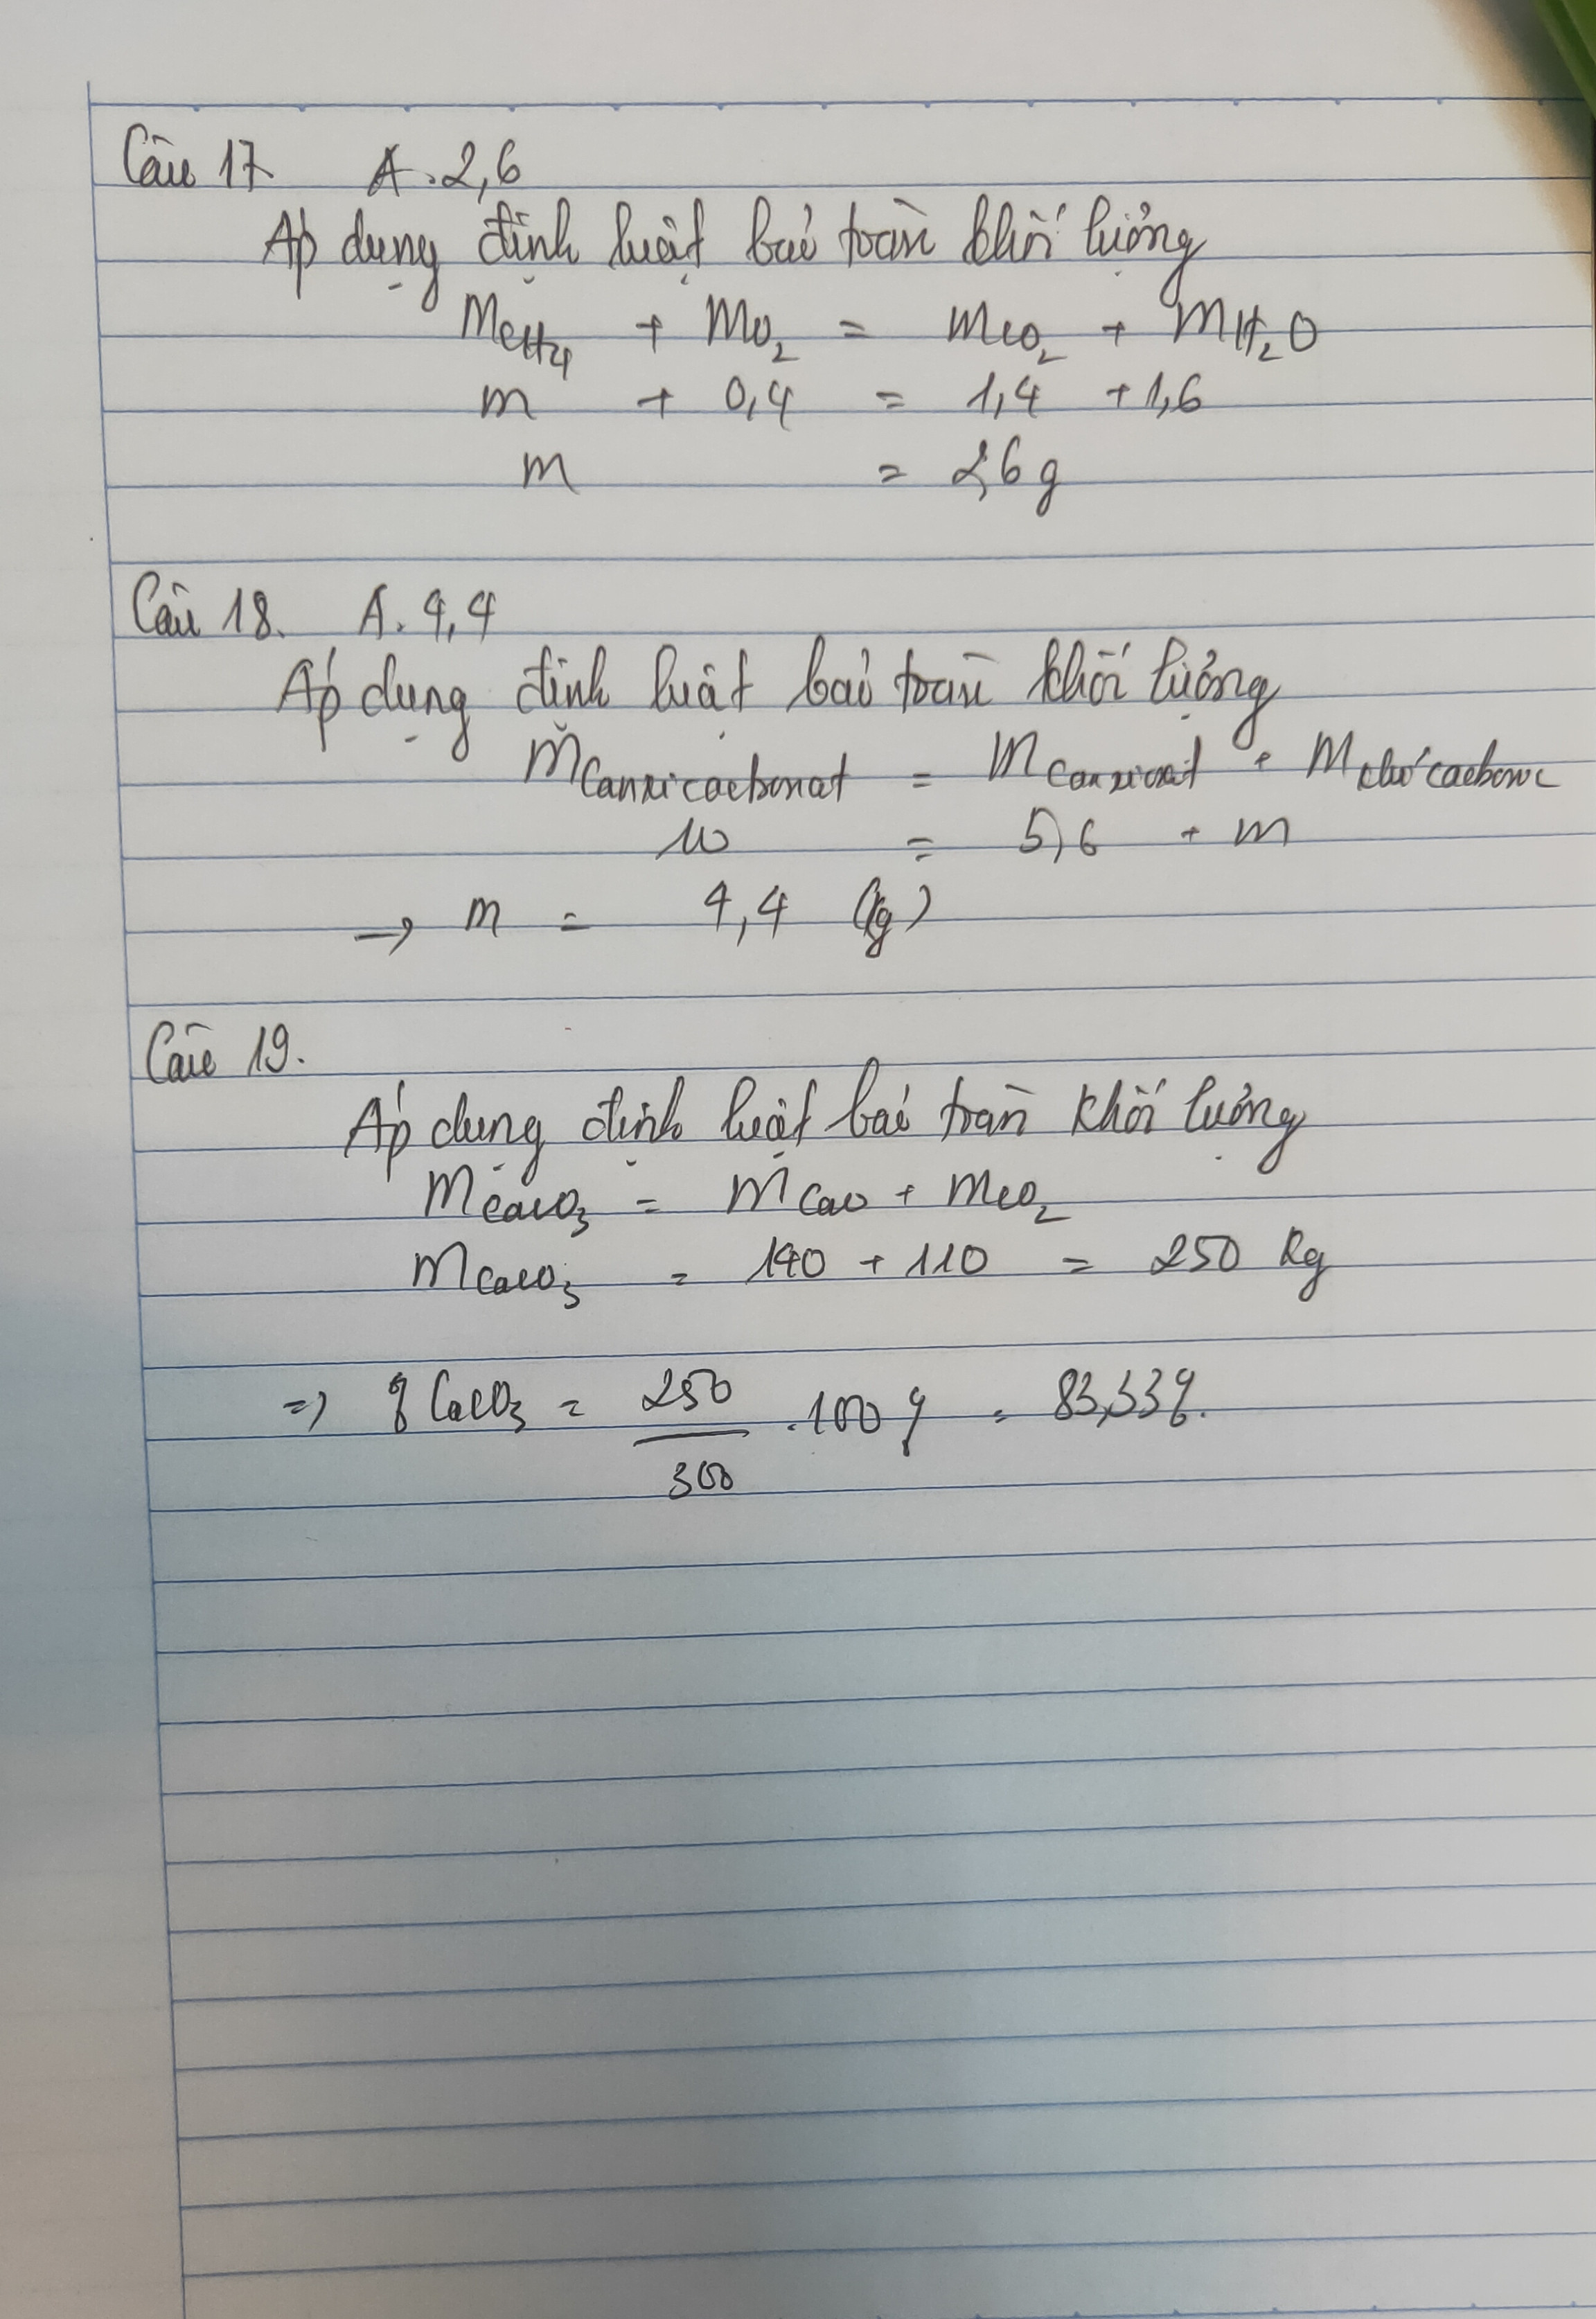 Câu 17 A. 2,6
Áp dụng định luật bảo toàn khối lượng
mCH4 + mO2 = mCO2 + mH2O
m + 0,4 = 1,4 + 1,6
m = 2,6 g
Câu 18. A. 4,4
Áp dụng định luật bảo toàn khối lượng
mCanxicacbonat = mCanxioxit + mkhí cacbonic
10 = 5,6 + m
→ m = 4,4 (kg)
Câu 19.
Áp dụng định luật bảo toàn khối lượng
mCaCO3 = mCaO + mCO2
mCaCO3 = 140 + 110 = 250 kg
=> % CaCO3 = 250/300 . 100% = 83,33%.